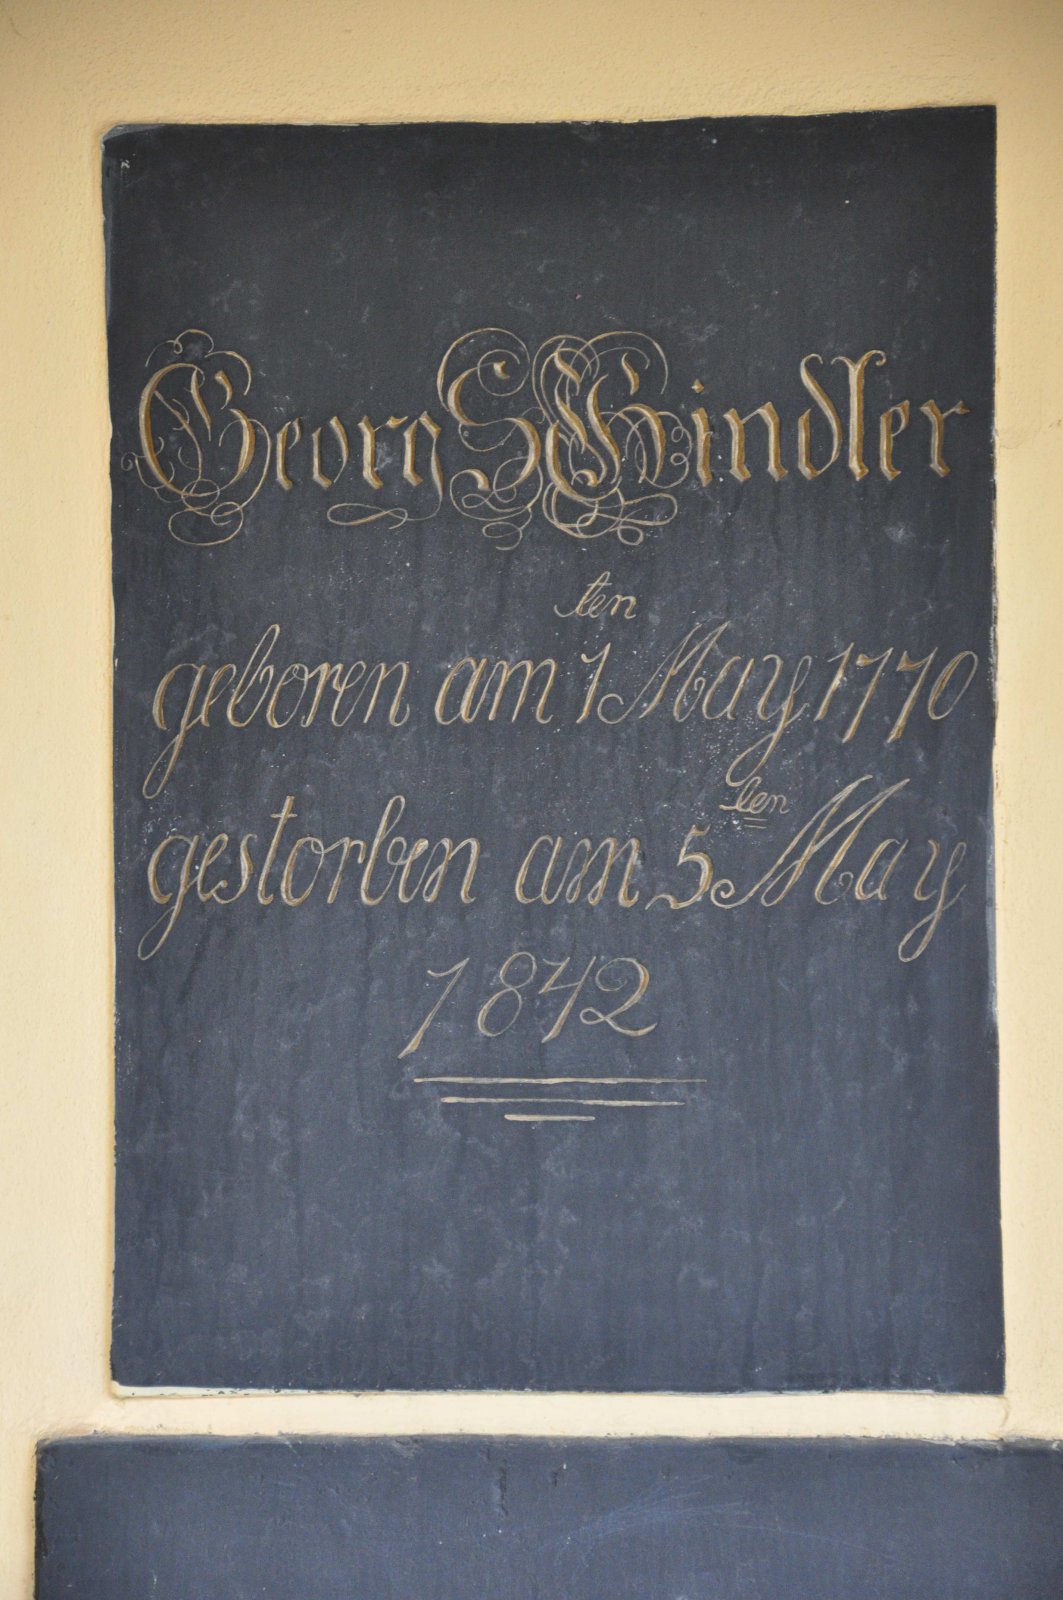 Georg SCHindler
geboren am 1ten May 1770
gestorben am 5ten May
1842